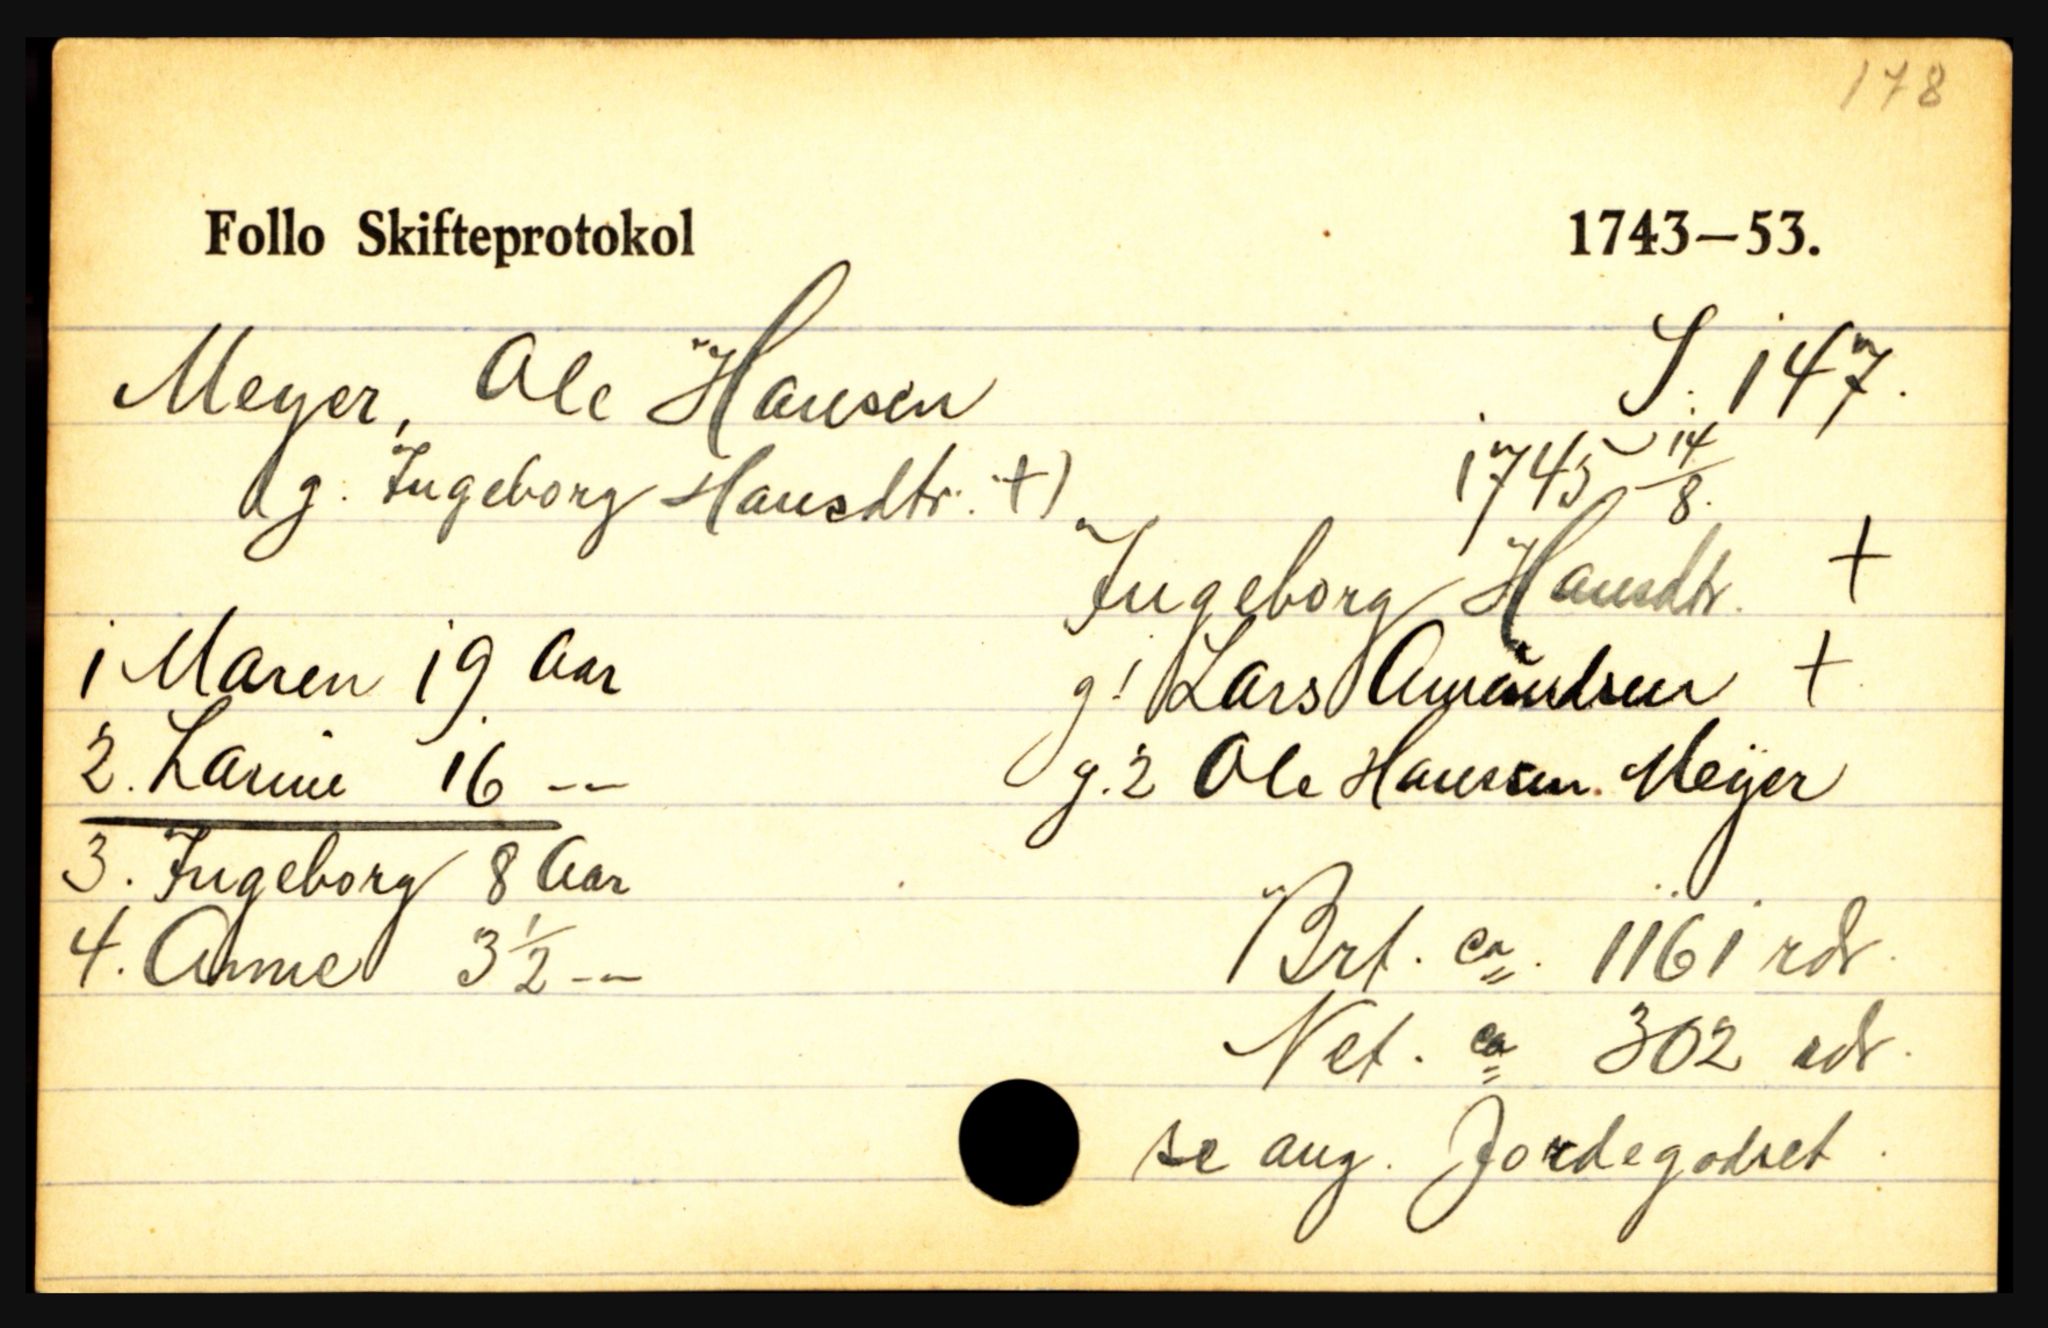 178
Follo Skifteprotokol 1743—53.
Meyer, Ole Hansen S. 147.
(g. Ingeborg Hansdtr. +) 1745 14/8.
Ingeborg Hansdtr. +
1 Maren 19 Aar g1 Lars Amundsen +
2. Larine 16 -- g.2 Ole Hansen Meyer
3. Ingeborg 8 Aar
4. Anne 3 1/2 -- Brt. ca. 1161 rdr.
Net. ca 302 rdr.
se ang. Jordegodset.